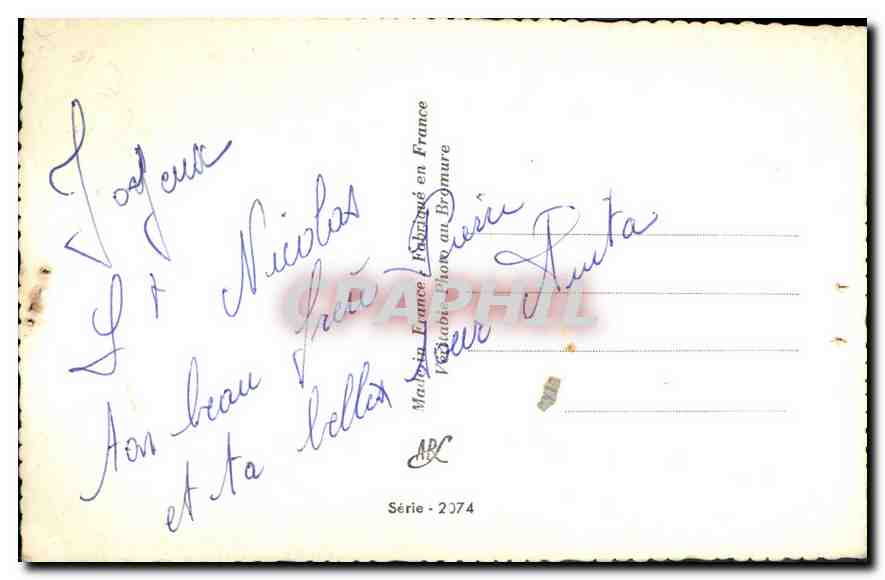 Joyeux
St Nicolas
Ton beau frère Pierre
et ta belle sœur Anita
Made in France - Fabriqué en France
Véritable Photo au Bromure
CPAPHIL
Série - 2074